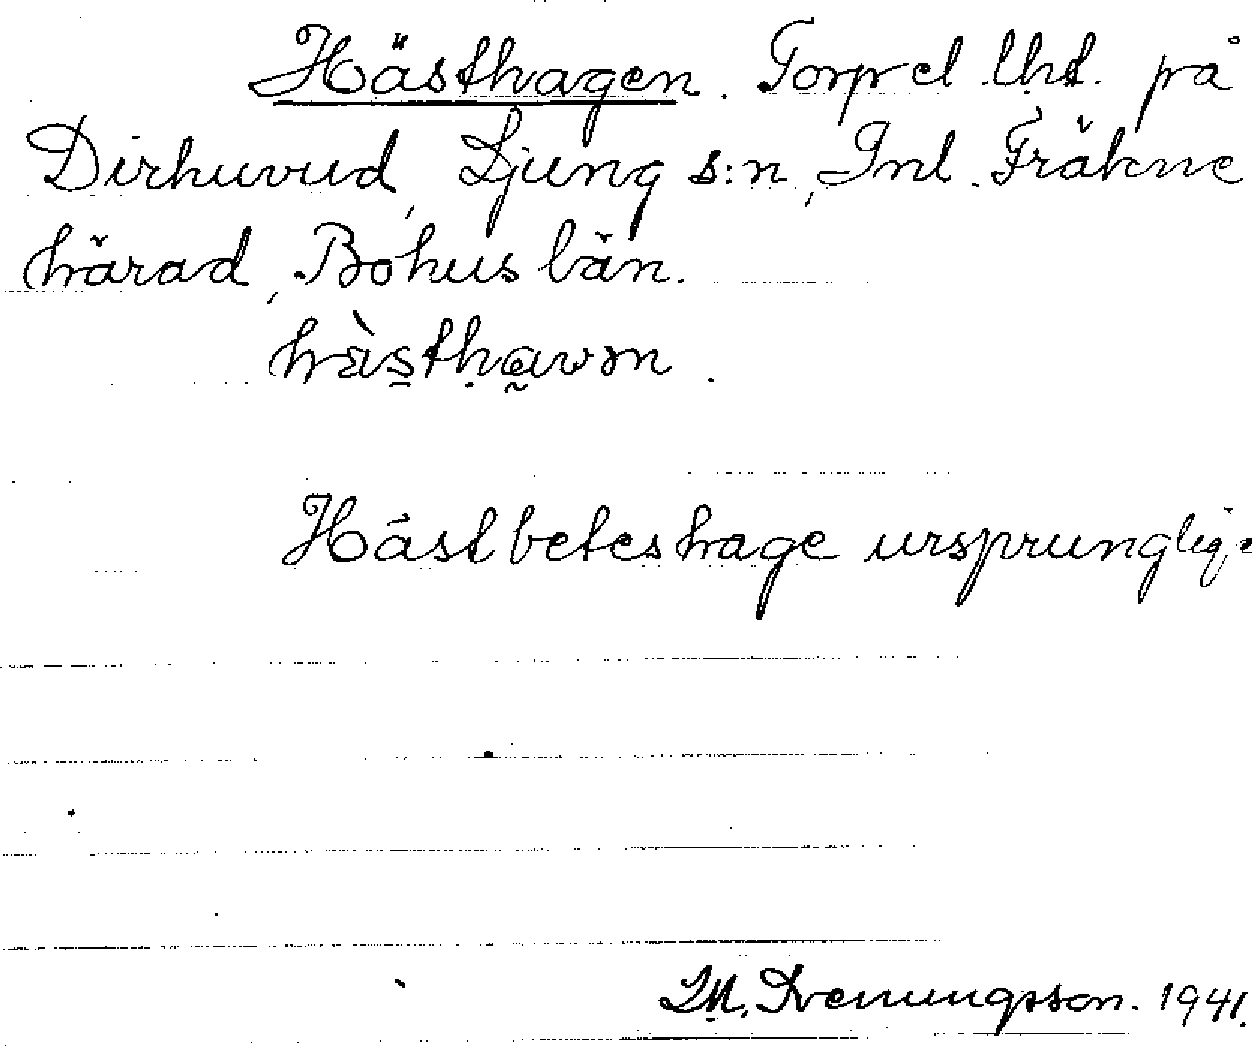 Hästhagen. Torp el. lht. på
Dirhuvud, Ljung s:n, Inl. Fräkne
härad, Bohus län.
hàsthavən.
Hästbeteshage ursprunglig
Svenungsson. 1941.